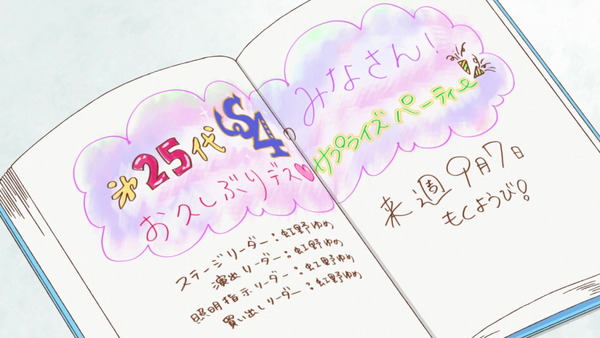 第25代S4
みなさん!
お久しぶりデス♡
サプライズパーティー
ステージリーダー:虹野ゆめ
演出リーダー:虹野ゆめ
照明指示リーダー:虹野ゆめ
買い出しリーダー:虹野ゆめ
来週9月7日
もくようび!